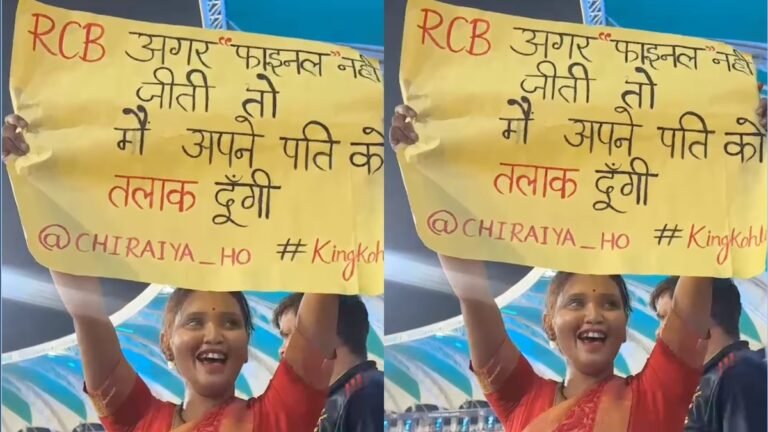 RCB अगर "फाइनल" नही
जीती तो
मैं अपने पति को
तलाक दूँगी
@CHIRAIYA_HO #Kingkoh
RCB अगर "फाइनल" नही
जीती तो
मैं अपने पति को
तलाक दूँगी
@CHIRAIYA_HO #Kingkohli